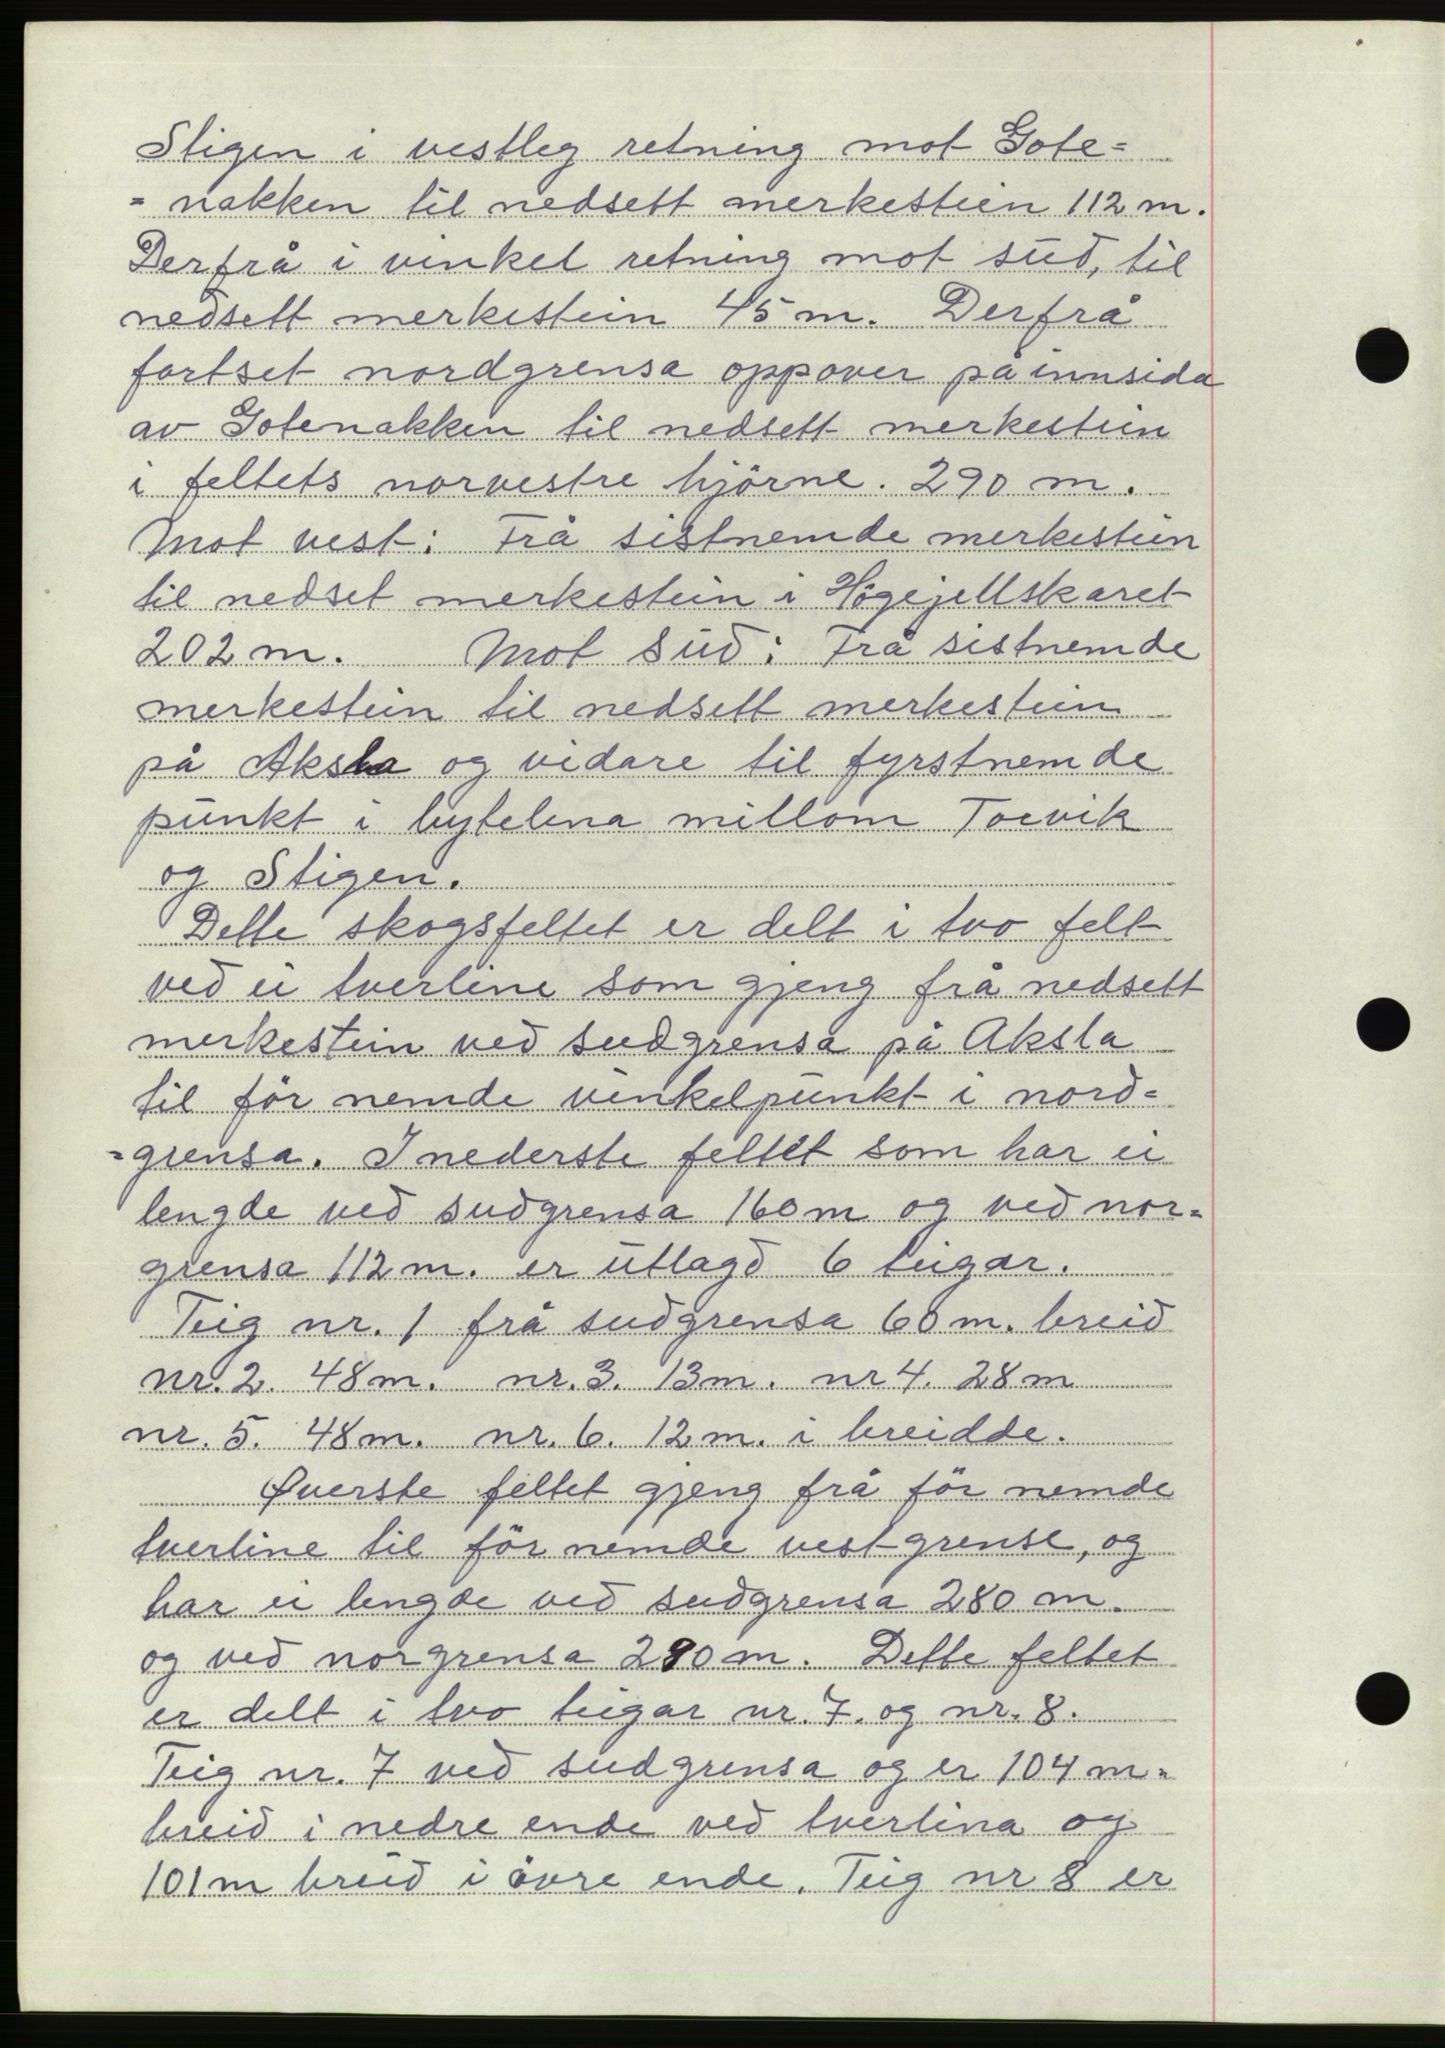 Stigen i vestleg retning mot Gote=
= nakken til nedsett merkestein 112 m.
Derfrå i vinkel retning mot sud, til
nedsett merkestein 45 m. Derfrå
fortset nordgrensa oppover på innsida
av Gotenakken til nedsett merkestein
i feltets norvestre hjörne. 290 m.
Mot vest: Frå sistnemde merkestein
til nedset merkestein i Högejellskaret
202 m. Mot sud: Frå sistnemde
merkestein til nedsett merkestein
på Aksla og vidare til fyrstnemde
punkt i bytelina millom Torvik
og Stigen.
Dette skogsfeltet er delt i tvo felt
ved ei tverline som gjeng frå nedsett
merkestein ved sudgrensa på Aksla
til för nemde vinkelpunkt i nord=
=grensa. I nederste feltet som har ei
lengde ved sudgrensa 160 m og ved nor=
grensa 112 m. er utlagd 6 teigar.
Teig nr. 1 frå sudgrensa 60 m. breid
nr. 2. 48 m. nr. 3. 13 m. nr 4. 28 m
nr. 5. 48 m. nr. 6. 12 m. i breidde.
Øverste feltet gjeng frå för nemde
tverline til för nemde vest-grense, og
har ei lengde ved sudgrensa 280 m.
og ved norgrensa 290 m. Dette feltet
er delt i tvo teigar nr. 7. og nr. 8.
Teig nr. 7 ved sudgrensa og er 104 m.
breid i nedre ende ved tverlina og
101 m breid i övre ende. Teig nr 8 er